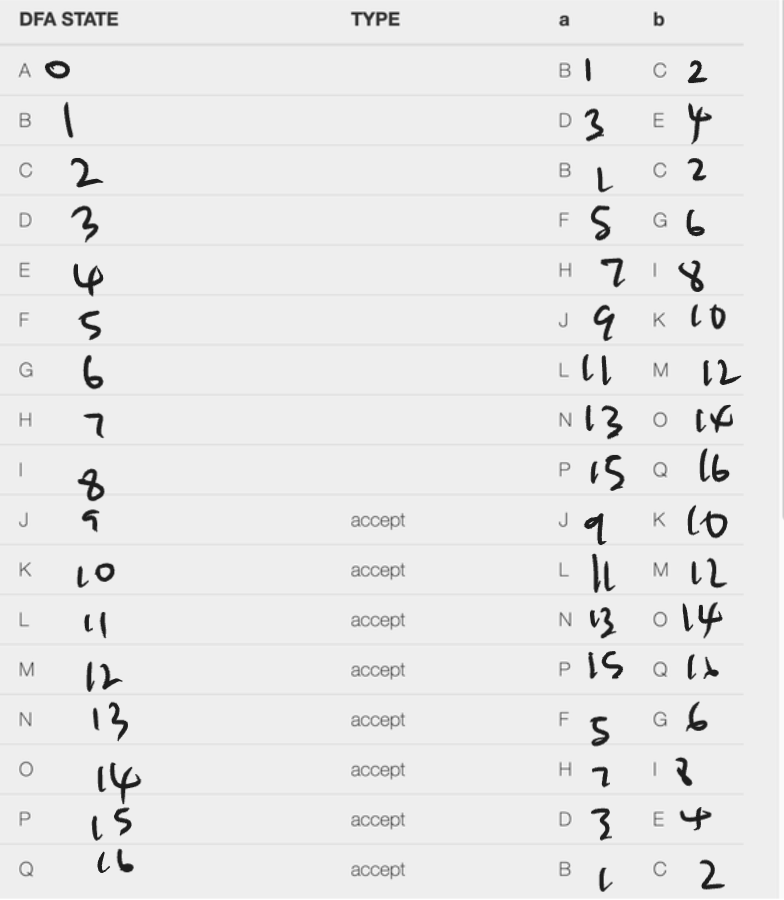 DFA STATE TYPE a b
A 0 B 1 C 2
B 1 D 3 E 4
C 2 B 1 C 2
D 3 F 5 G 6
E 4 H 7 I 8
F 5 J 9 K 10
G 6 L 11 M 12
H 7 N 13 O 14
I 8 P 15 Q 16
J 9 accept J 9 K 10
K 10 accept L 11 M 12
L 11 accept N 13 O 14
M 12 accept P 15 Q 16
N 13 accept F 5 G 6
O 14 accept H 7 I 8
P 15 accept D 3 E 4
Q 16 accept B 1 C 2